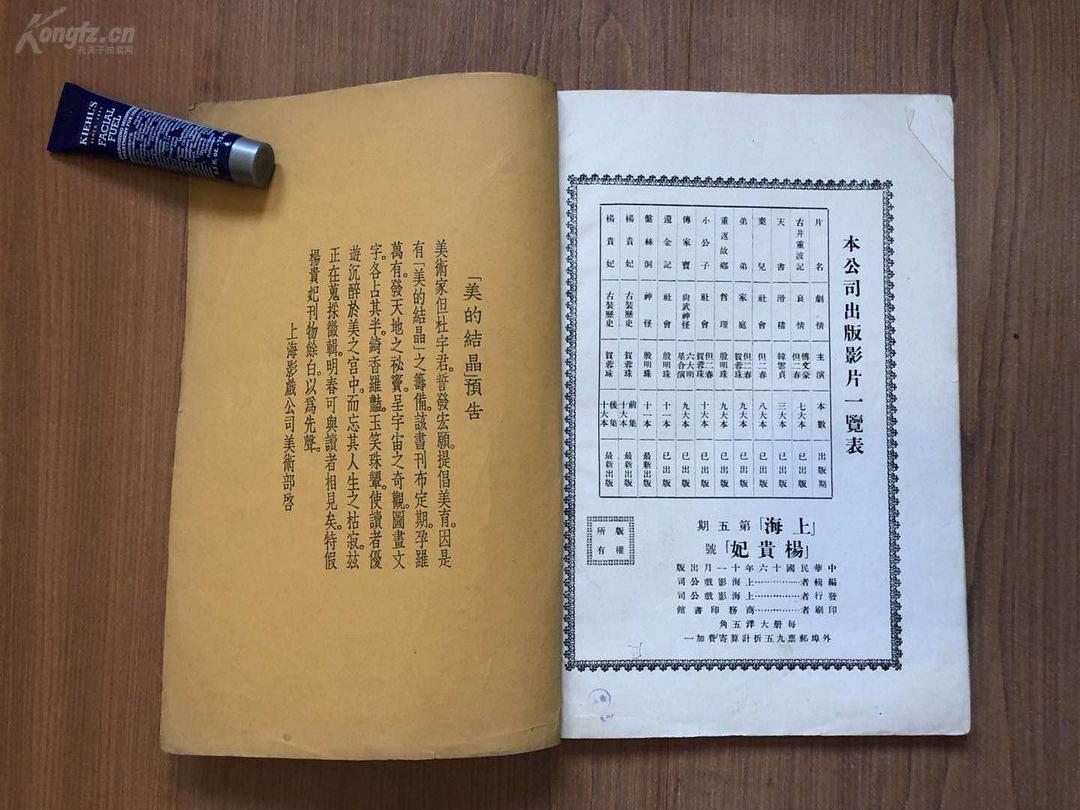 Kongfz.cn
孔夫子拍卖网
KIEHL'S
SINCE 1851
FACIAL
FUEL
本公司出版影片一覽表
片名 劇情 主演 本數 出版期
古井重波記 哀情 傅文豪 但二春 七大本 已出版
天書 滑稽 韓雲貞 三大本 已出版
棄兒 社會 但二春 八大本 已出版
弟弟 家庭 但二春 賀蓉珠 九大本 已出版
重返故鄉 哲理 殷明珠 九大本 已出版
小公子 社會 但二春 賀蓉珠 十大本 已出版
傳家寶 尙武神怪 六大明星合演 九大本 已出版
還金記 社會 殷明珠 十一本 已出版
盤絲洞 神怪 殷明珠 十一本 最新出版
楊貴妃 古裝歷史 賀蓉珠 前集十大本 最新出版
楊貴妃 古裝歷史 賀蓉珠 後集十大本 最新出版
「上海」第五期
「楊貴妃」號
版權
所有
中華民國十六年十一月出版
編輯者⋯⋯⋯上海影戲公司
發行者⋯⋯⋯上海影戲公司
印刷者⋯⋯⋯商務印書館
每册大洋五角
外埠郵票九五折計算寄費加一
「美的結晶」預告
美術家但杜宇君。誓發宏願。提倡美育。因是
有「美的結晶」之籌備。該書刊布定期。孕羅
萬有。發天地之祕竇。呈宇宙之奇觀。圖畫文
字。各占其半。綺香羅豔。玉笑珠顰。使讀者優
遊沉醉於美之宮中。而忘其人生之枯寂。玆
正在蒐採徵輯。明春可與讀者相見矣。特假
楊貴妃刊物餘白。以爲先聲。
上海影戲公司美術部啓